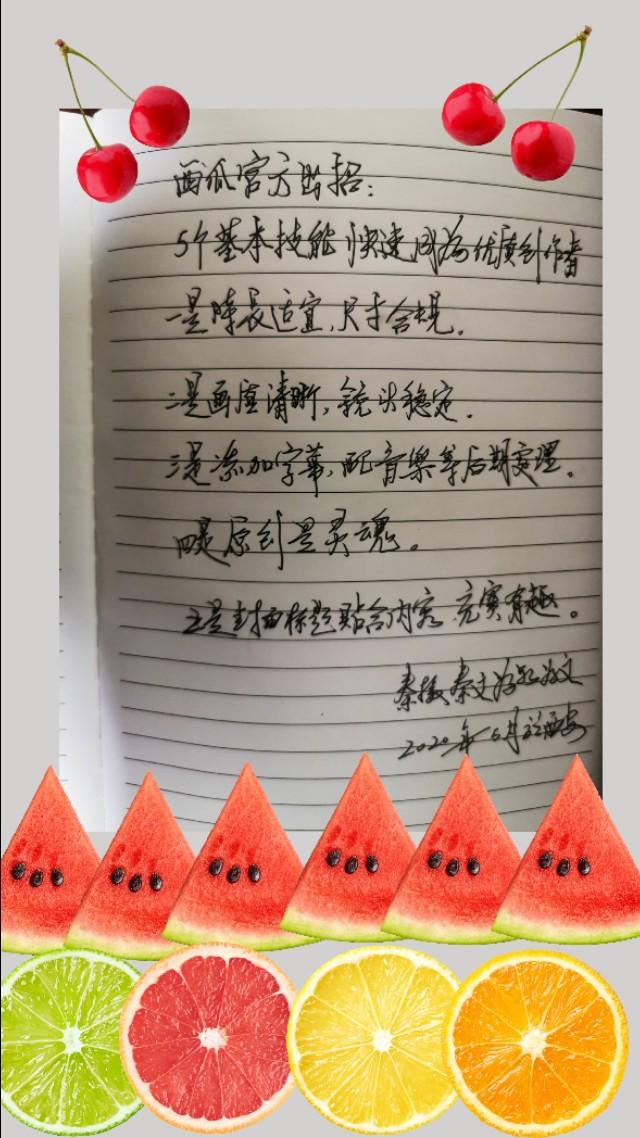 西瓜官方出招:
5个基本技能 快速成为优质创作者
一是时长适宜,尺寸合规。
二是画质清晰,镜头稳定。
三是添加字幕,配音乐等后期处理。
四是原创是灵魂。
五是封面标题贴合内容 充实有趣。
秦楼秦文
2020年6月于西安